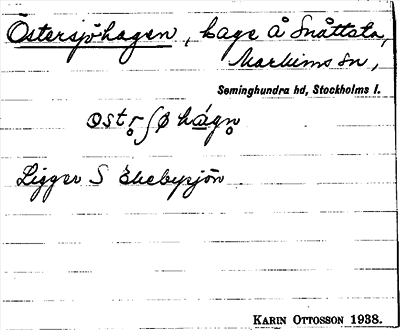 Östersjöhagen, hage å Snåttsta,
Markims sn,
Seminghundra hd, Stockholms l.
ost̥r̥ ʃø hágn̥
Ligger S Ekebysjön.
KARIN OTTOSSON 1938.